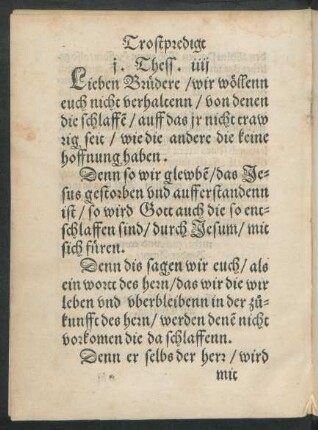 Trostpredigt
j. Thess. iiij
Lieben Brüdere /wir wöllenn
euch nicht verhaltenn / von denen
die schlaffē / auff das jr nicht traw
rig seit / wie die andere die keine
hoffnung haben.
Denn so wir glewbē/das Je-
sus gestorben vnd aufferstandenn
ist / so wird Gott auch die so ent-
schlaffen sind/durch Jesum/mit
sich füren.
Denn dis sagen wir euch/als
ein wortt des hern/das wir die wir
leben vnd vberbleibenn in der zů-
kunfft des hern/ werden denē nicht
vorkomen die da schlaffenn.
Denn er selbs der herr / wird
mit